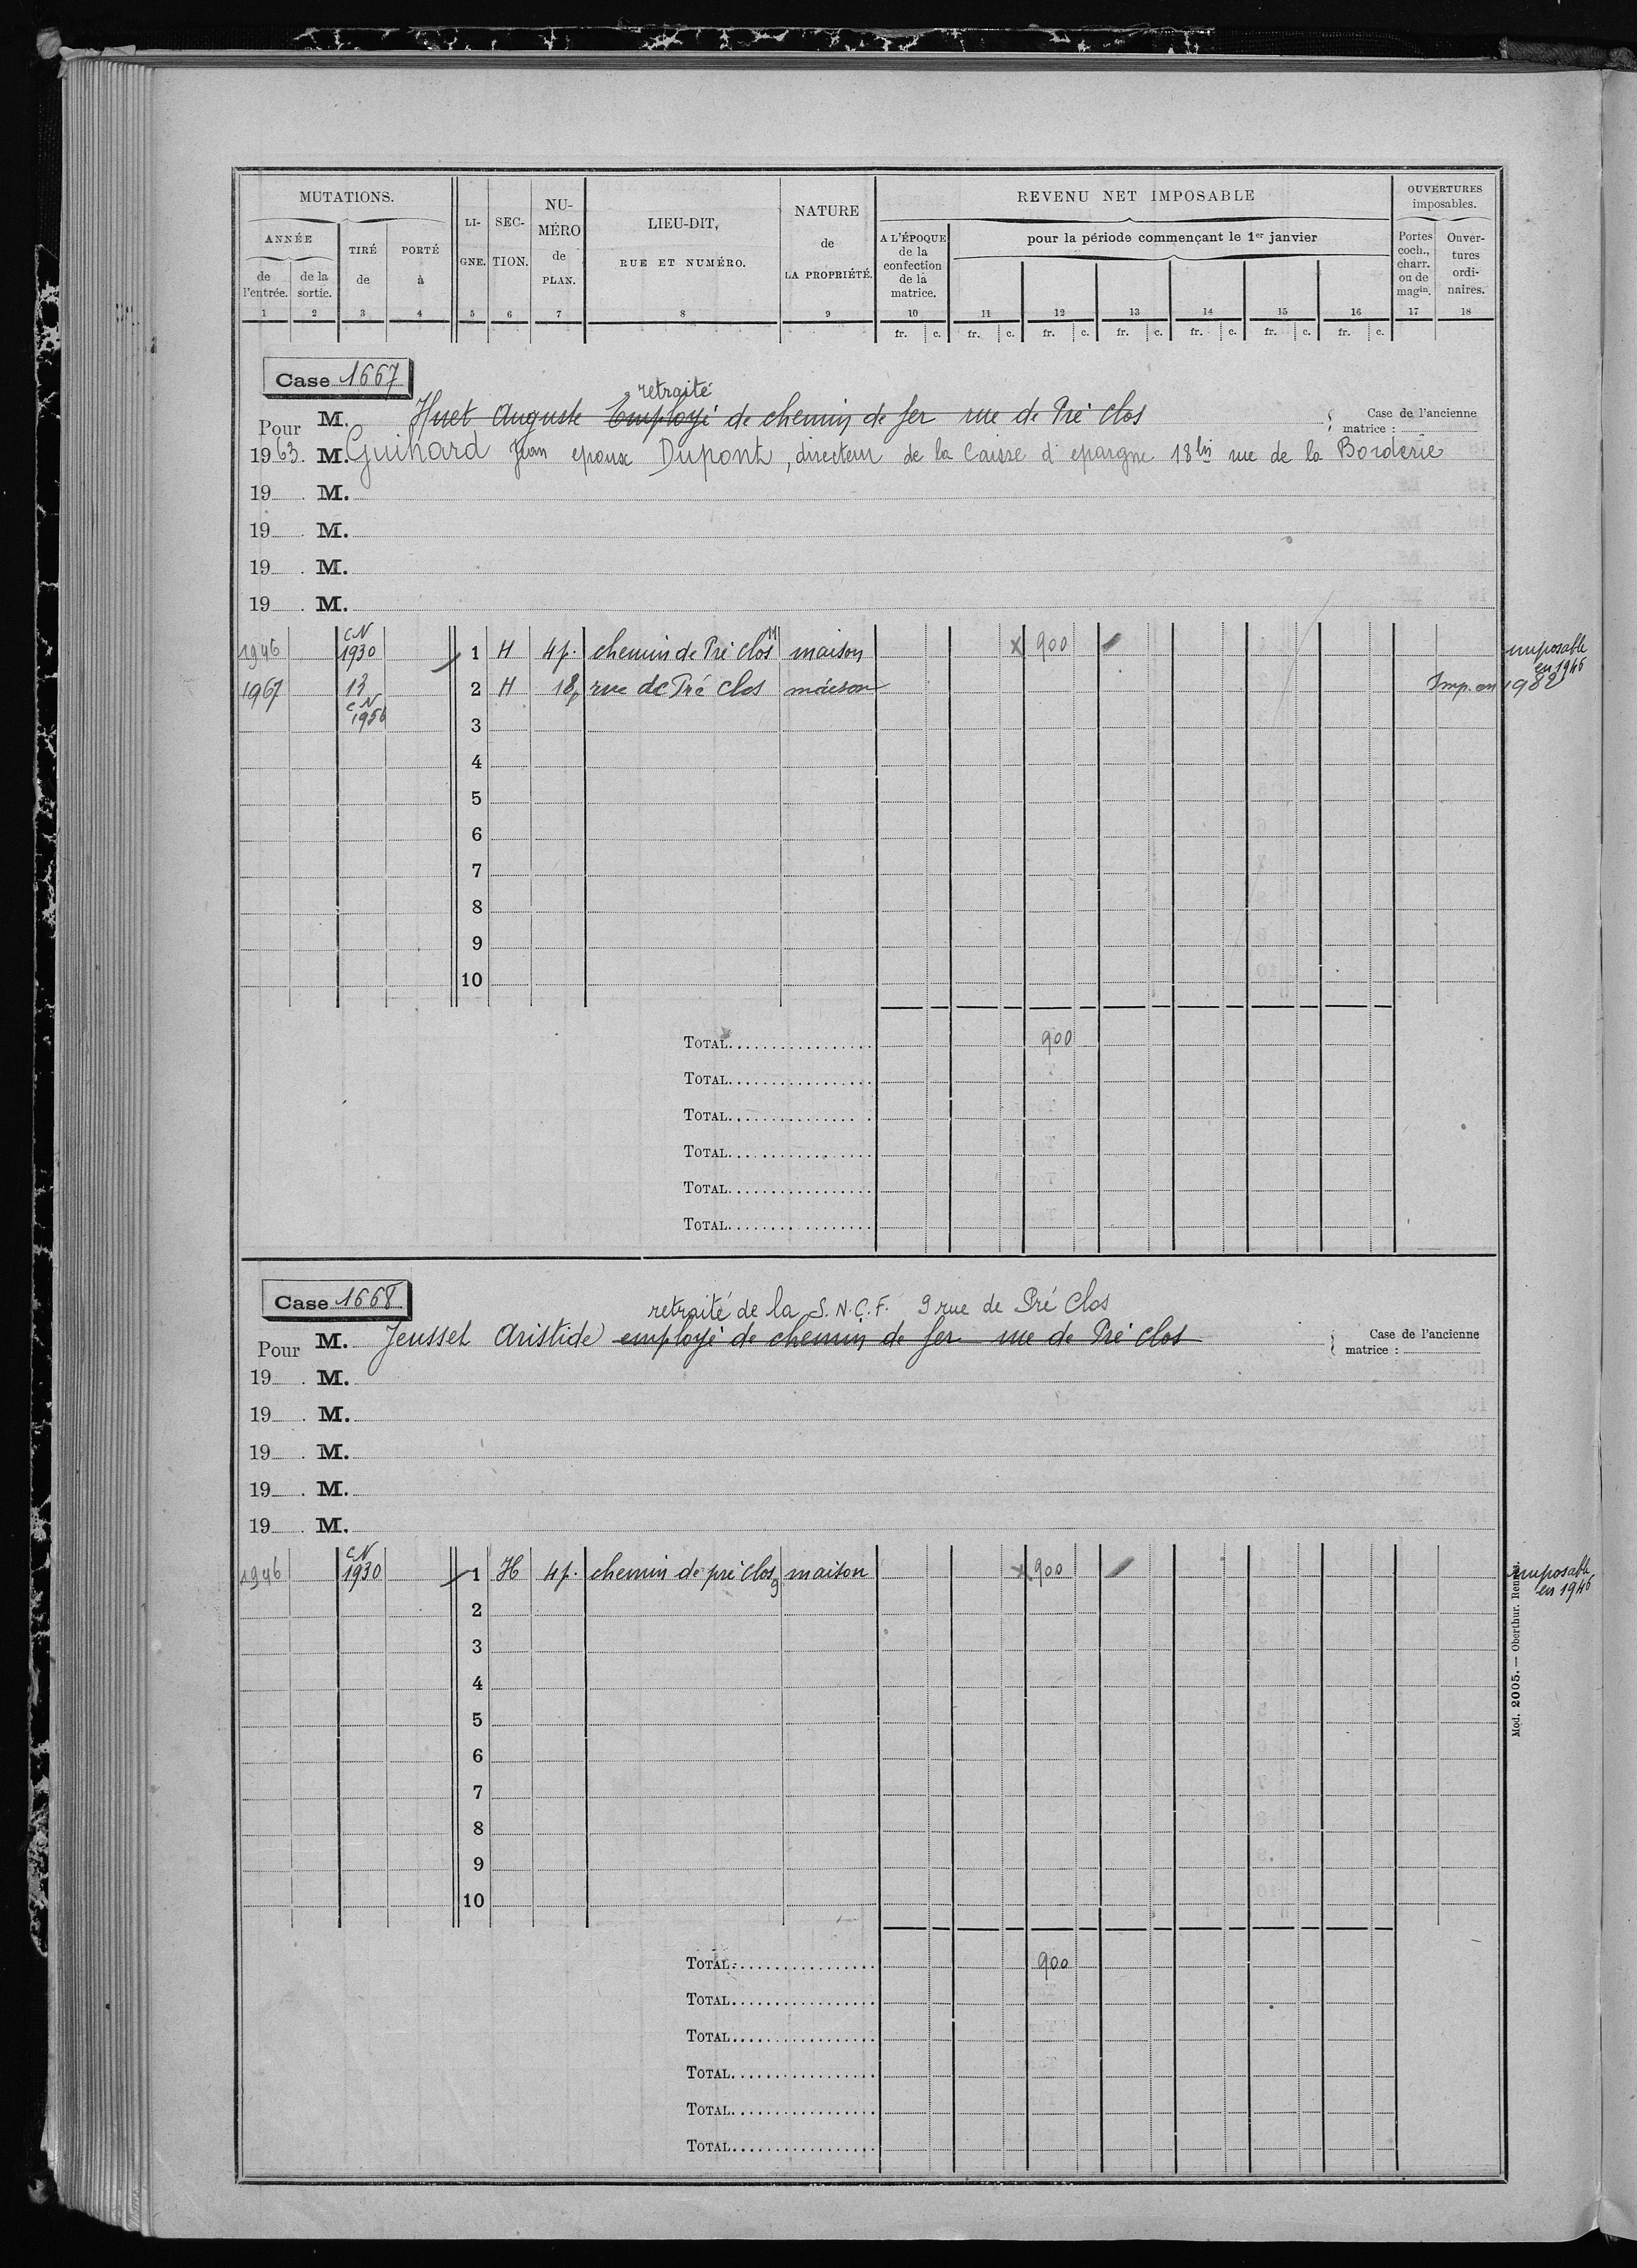 MUTATIONS.
ANNÉE
de l'entrée.
de la sortie.
TIRÉ de
PORTÉ à
LI-GNE.
SEC-TION.
NU-MÉRO de PLAN.
LIEU-DIT,
RUE ET NUMÉRO.
NATURE de LA PROPRIÉTÉ.
REVENU NET IMPOSABLE
A L'ÉPOQUE de la confection de la matrice.
pour la période commençant le 1er janvier
OUVERTURES imposables.
Portes coch., charr. ou de magin.
Ouver-tures ordi-naires.
1 2 3 4 5 6 7 8 9 10 11 12 13 14 15 16 17 18
fr. c. fr. c. fr. c. fr. c. fr. c. fr. c. fr. c.
Case 1667
retraité
Pour M. Huet Auguste Employé de chemin de fer rue de Pré Clos
Case de l'ancienne matrice :
1963 M. Guihard Jean epoux Dupont, directeur de la Caisse d'epargne 18bis rue de la Borderie
19 M.
19 M.
19 M.
19 M.
1946 CN 1930 1 H 4p. chemin de Pré Clos 11 maison x 900 imposable en 1946
1967 13 CN 1956 2 H 18p rue de Pré Clos maison Imp. en 1982
3
4
5
6
7
8
9
10
TOTAL 900
TOTAL
TOTAL
TOTAL
TOTAL
TOTAL
Case 1668
retraité de la S.N.C.F. 9 rue de Pré Clos
Pour M. Jeusset Aristide employé de chemin de fer rue de Pré Clos
Case de l'ancienne matrice :
19 M.
19 M.
19 M.
19 M.
19 M.
1946 CN 1930 1 H 4p. chemin de pré clos 9 maison x 900 imposable en 1946
2
3
4
5
6
7
8
9
10
TOTAL 900
TOTAL
TOTAL
TOTAL
TOTAL
TOTAL
Mod. 2005. — Oberthur. Rennes.